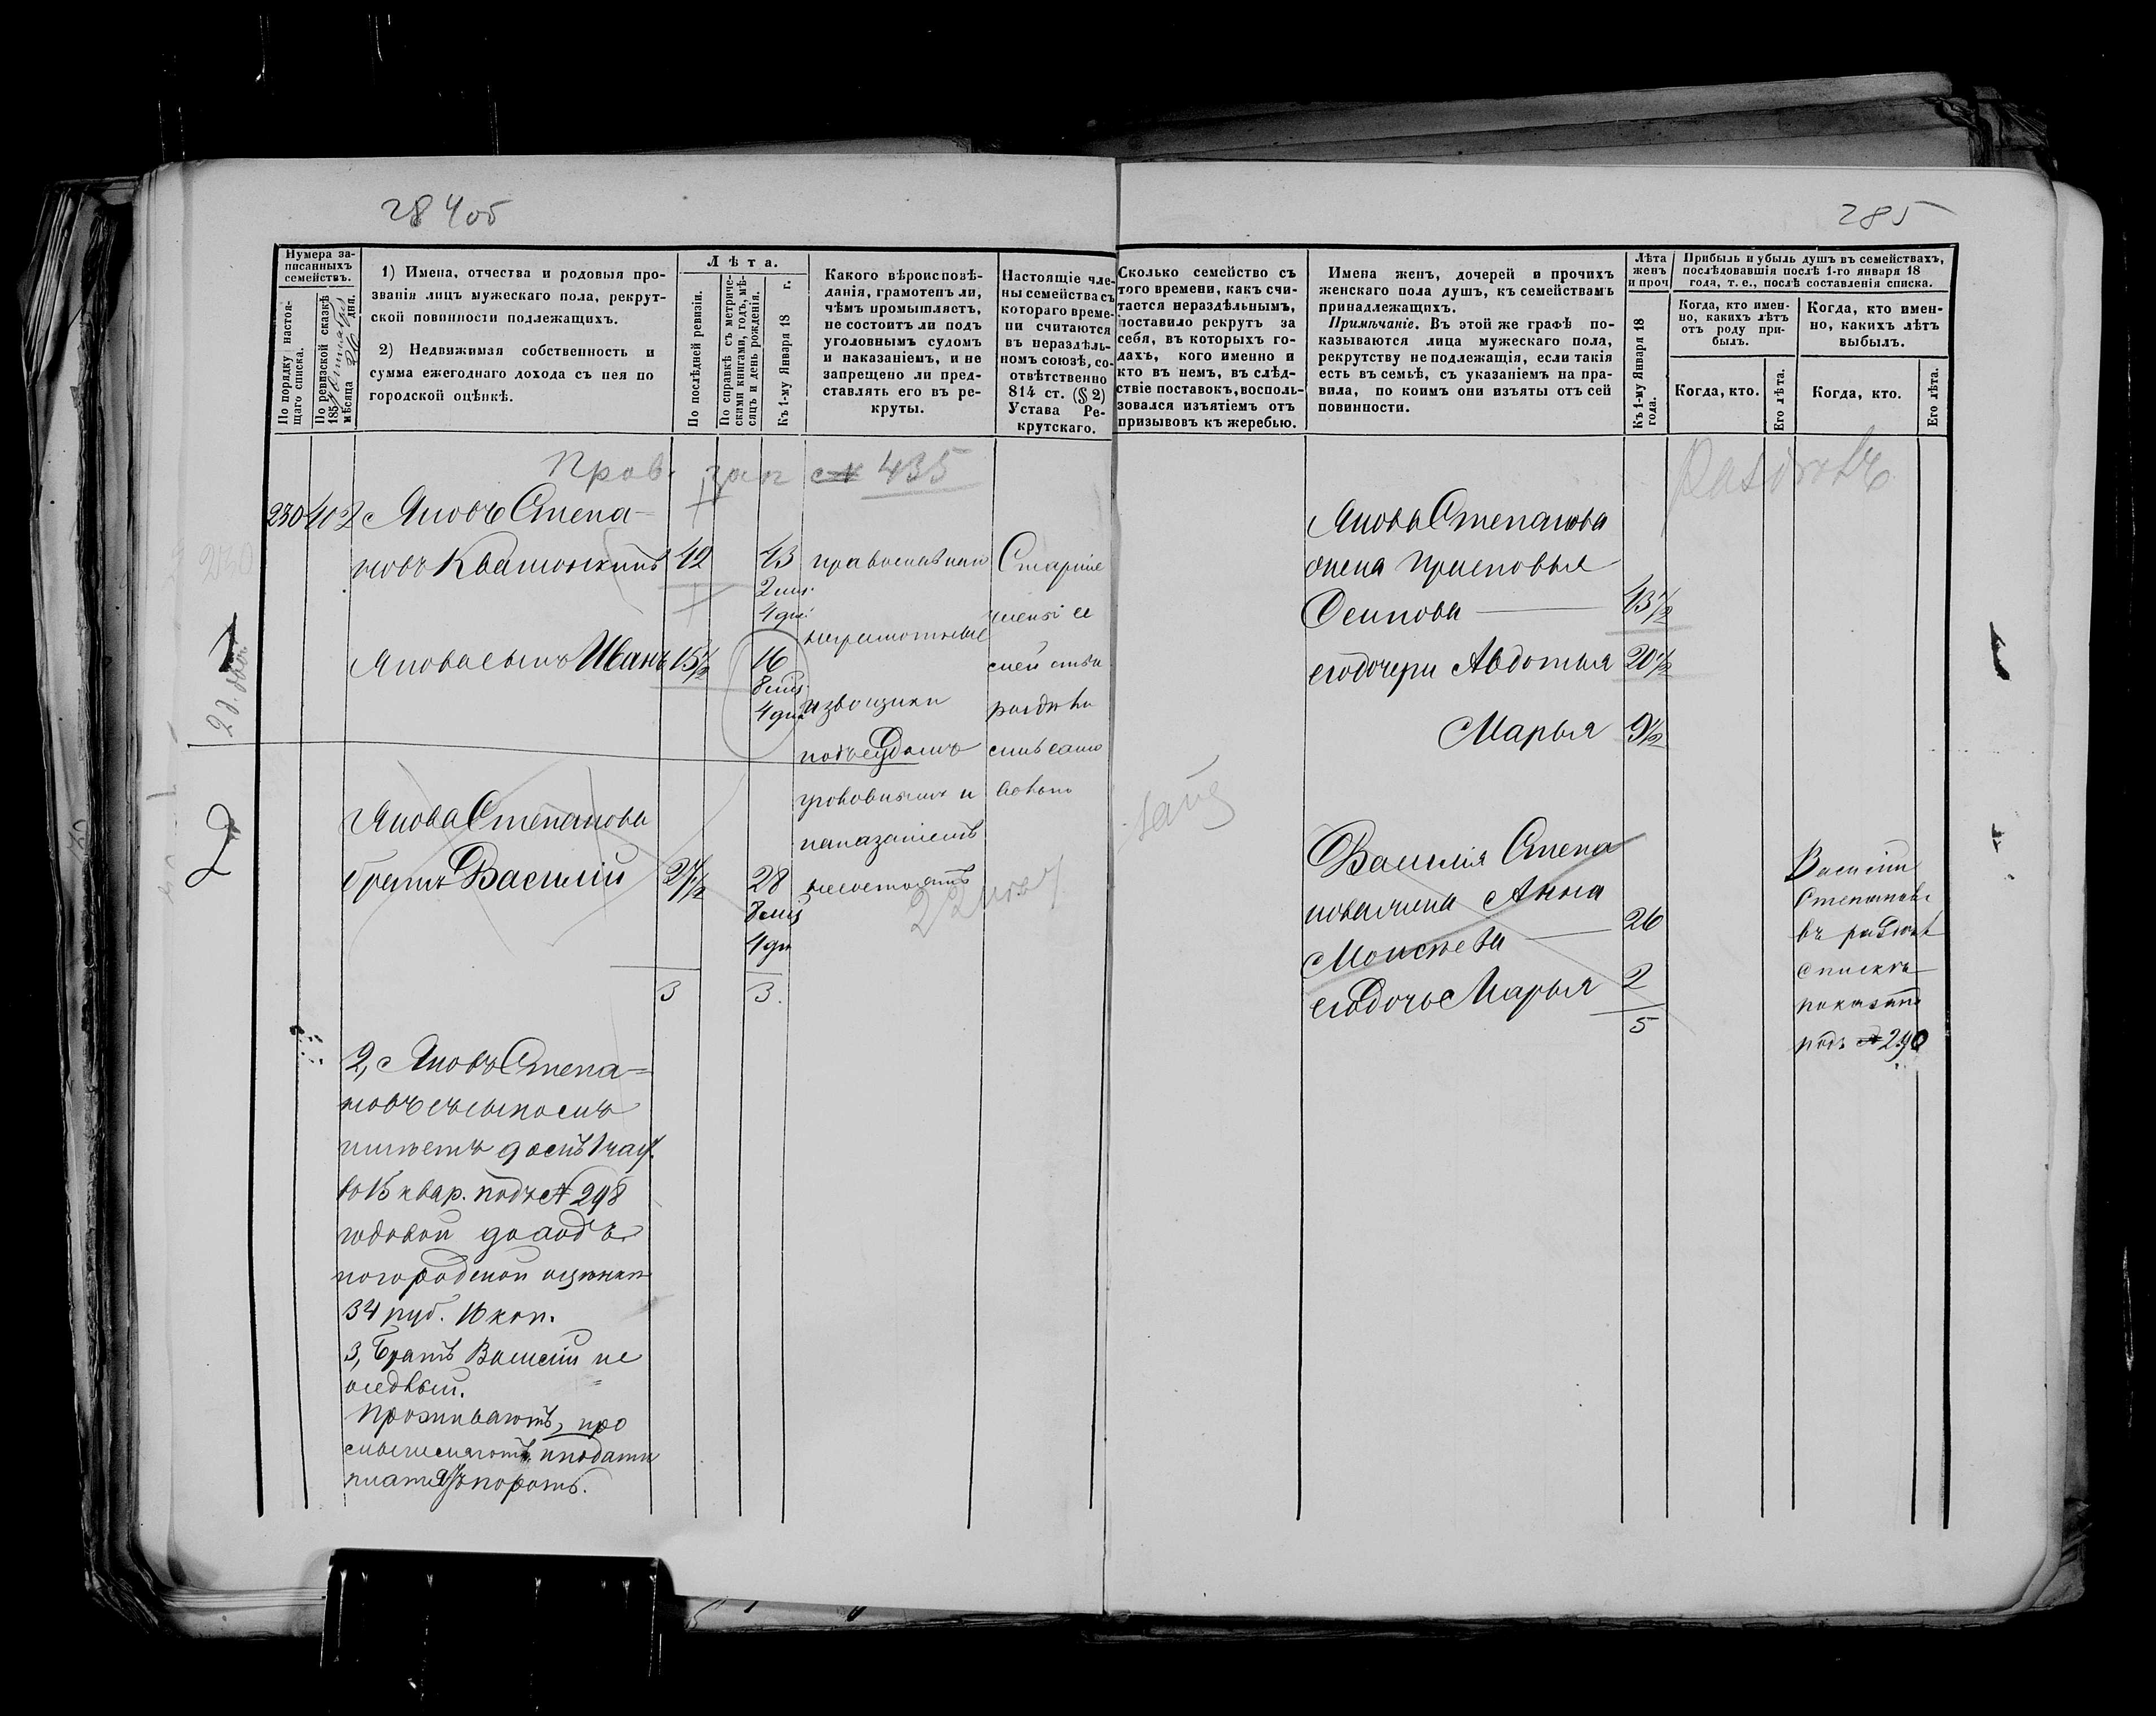 284об
285
Нумера за-
писанныхъ
семействъ.
По порядку настоя-
щаго списка.
По ревизской сказкѣ
185
мѣсяца дня.
1) Имена, отчества и родовыя про-
званія лицъ мужескаго пола, рекрут-
ской повинности подлежащихъ.
2) Недвижимая собственность и
сумма ежегоднаго дохода съ нея по
городской оцѣнкѣ.
Лѣта.
По послѣдней ревизіи.
По справкѣ съ метриче-
скими книгами, годъ, мѣ-
сяцъ и день рожденія.
Къ 1-му Января 18 г.
Какого вѣроисповѣ-
данія, грамотенъ ли,
чѣмъ промышляетъ,
не состоитъ ли подъ
уголовнымъ судомъ
и наказаніемъ, и не
запрещено ли пред-
ставлять его въ ре-
круты.
Настоящіе чле-
ны семейства съ
котораго време-
ни считаются
въ нераздѣль-
номъ союзѣ, со-
отвѣтственно
814 ст. (§ 2)
Устава Ре-
крутскаго.
Сколько семейство съ
того времени, какъ счи-
тается нераздѣльнымъ,
поставило рекрутъ за
себя, въ которыхъ го-
дахъ, кого именно и
кто въ немъ, въ слѣд-
ствіе поставокъ, восполь-
зовался изъятіемъ отъ
призывовъ къ жеребью.
Имена женъ, дочерей и прочихъ
женскаго пола душъ, къ семействамъ
принадлежащихъ.
Примѣчаніе. Въ этой же графѣ по-
казываются лица мужескаго пола,
рекрутству не подлежащія, если такія
есть въ семьѣ, съ указаніемъ на пра-
вила, по коимъ они изъяты отъ сей
повинности.
Лѣта
женъ
и проч
Къ 1-му Января 18
года.
Прибыль и убыль душъ въ семействахъ,
послѣдовавшія послѣ 1-го января 18
года, т. е., послѣ составленія списка.
Когда, кто имен-
но, какихъ лѣтъ
отъ роду при-
былъ.
Когда, кто имен-
но, какихъ лѣтъ
выбылъ.
Когда, кто.
Его лѣта.
Когда, кто.
Его лѣта.
Пров. зап № 435
230 402 Яковъ Степа-
новъ 42 43
2 мѣс.
4 дн.
Якова сынъ Иванъ 15 1/2 16
8 мѣс
4 дня
Якова Степанова
братъ Василій 27 1/2 28
8 мѣс
4 дн
3 3.
православнаго
неграмотные
извощики
подъ судомъ
уголовнымъ и
наказаніемъ
несостоятъ
Старшіе
члены се
мейства
Якова Степанова
жена
Осипова 43 1/2
его дочери Авдотья 20 1/2
Марья 9 1/2
Василія Степа
нова жена Анна
Моисѣева 26
его дочь Марья 2
5
Василій
Степановъ
въ
спискѣ
показанъ
подъ № 290
2, Яковъ Степа-
новъ съ сыномъ
имѣетъ домъ 1 час.
в 15 квар. подъ № 298
годовой доходъ
по городской оцѣнкѣ
34 руб. 16 коп.
3, Братъ Василій не
Проживаютъ, про
мышляютъ и подати